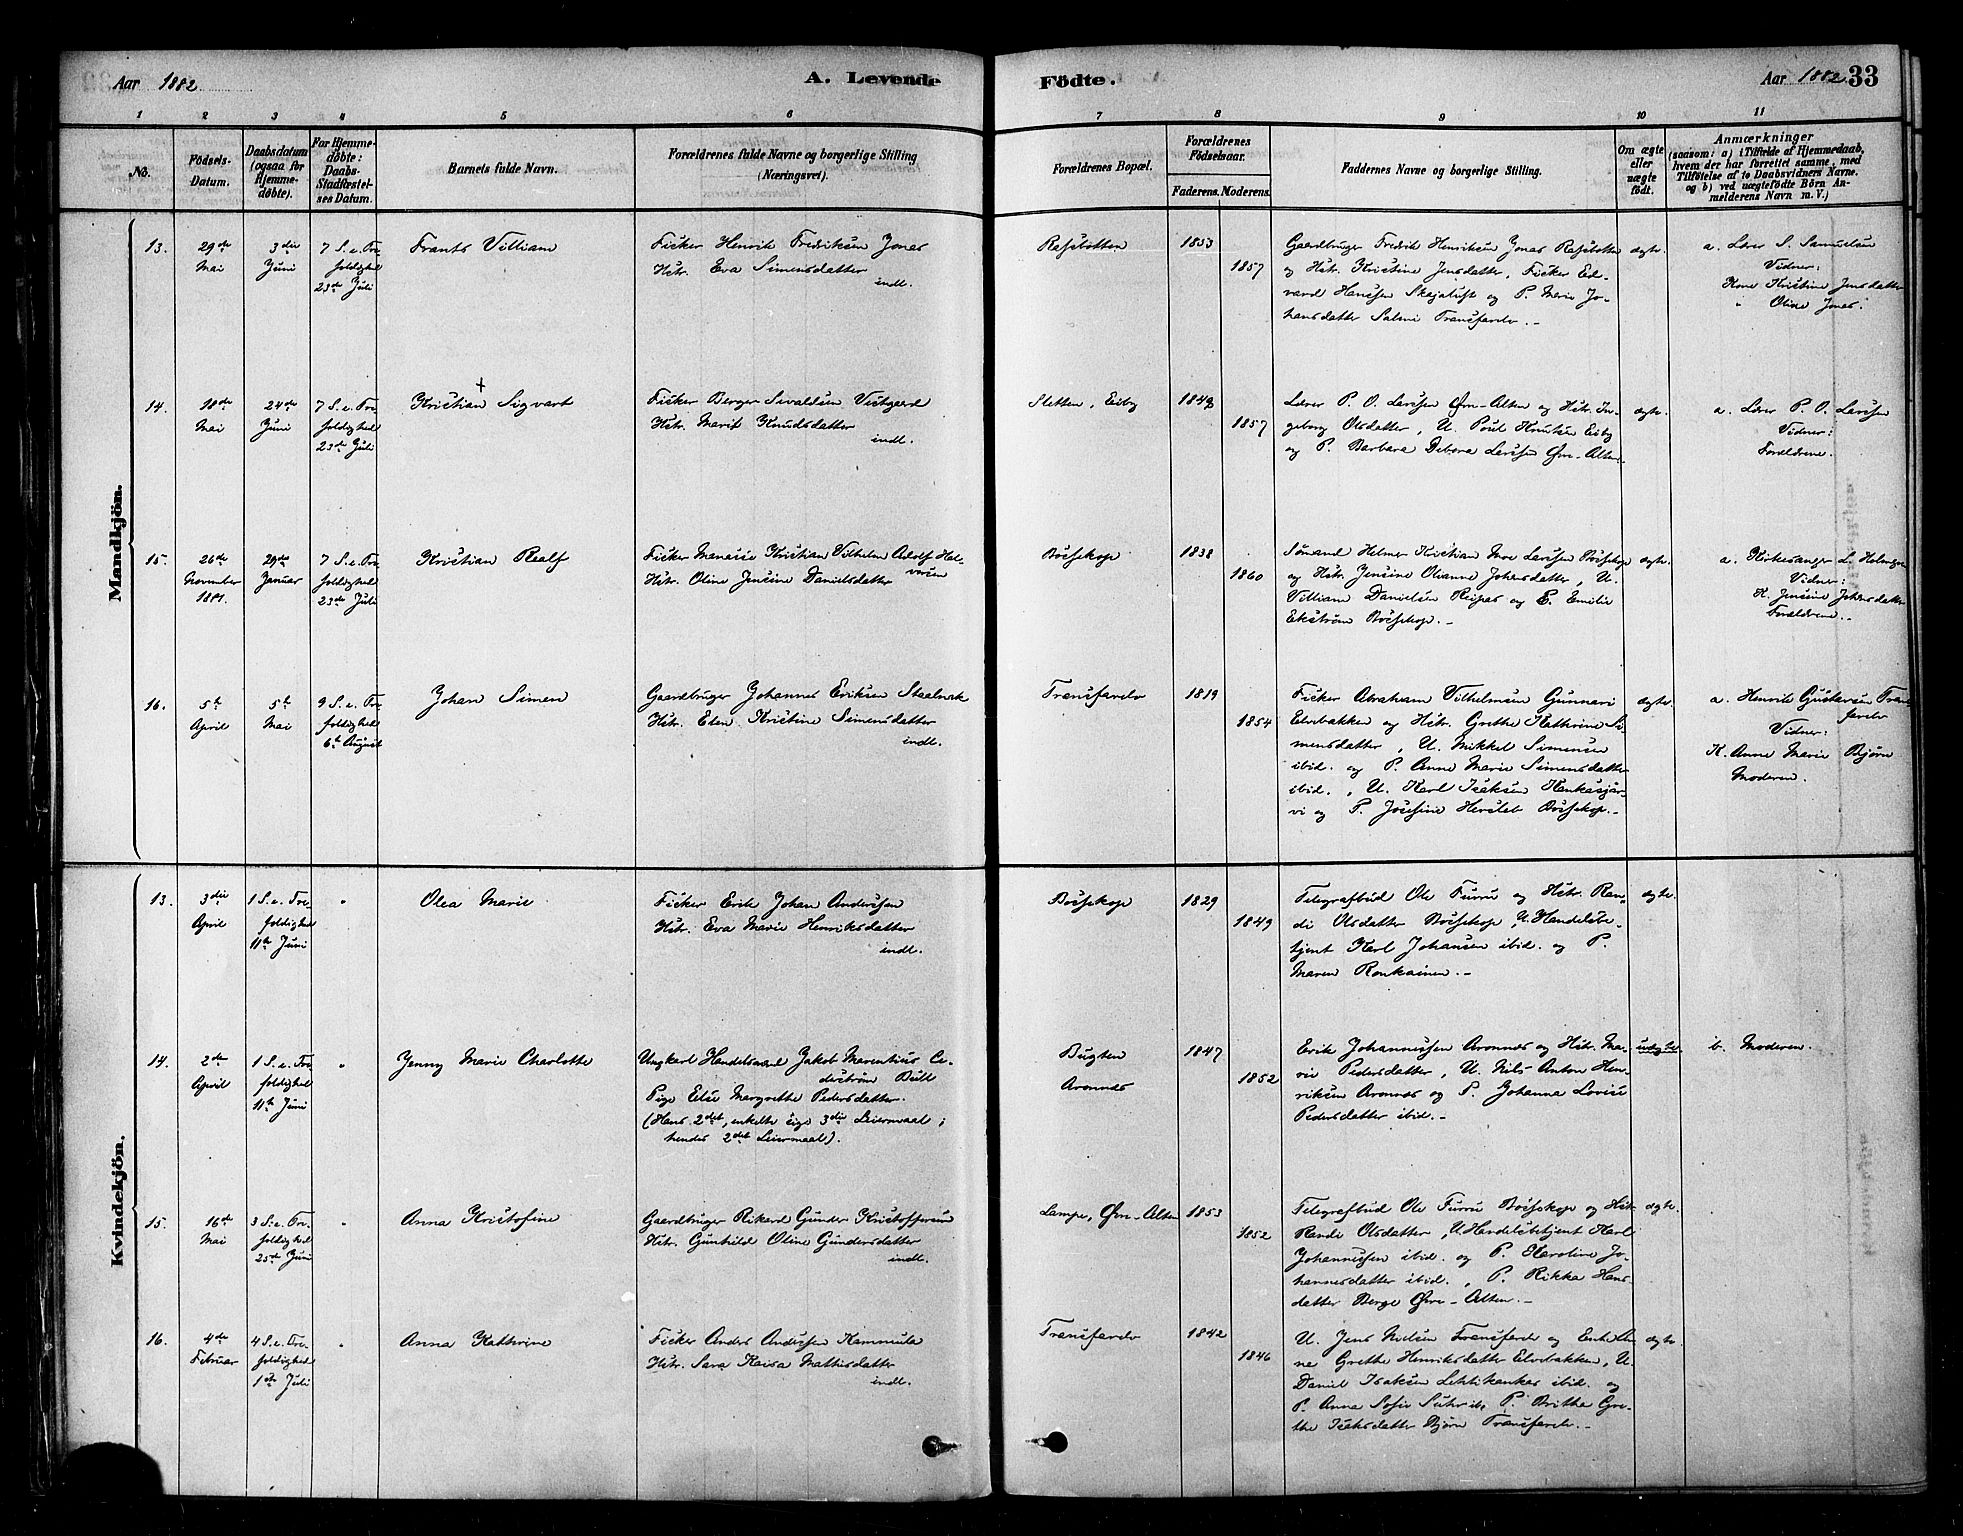 Aar 1882
A. Levende
Födte.
Aar 1882
33
1 2 3 4 5 6 7 8 9 10 11
No.
Födsels-
Datum.
Daabsdatum
(ogsaa for
Hjemme-
döbte).
For Hjemme-
döbte:
Daabs-
Stadfæstel-
ses Datum.
Barnets fulde Navn.
Forældrenes fulde Navne og borgerlige Stilling
(Næringsvei).
Forældrenes Bopæl.
Forældrenes
Födselsaar.
Faderens. Moderens.
Faddernes Navne og borgerlige Stilling.
Om ægte
eller
uægte
födt.
Anmærkninger
(saasom: a) i Tilfælde af Hjemmedaab,
hvem der har forrettet samme, med
Tilföielse af to Daabsvidners Navne.
og b) ved uægtefödte Börn An-
melderens Navn m. V.)
Mandkjön.
13.
29de
Mai
3die
Juni
7 S. e. Tre
foldighed
23de Juli
Frants Villiam
Fisker Henrik Fredriksen Jonas
Hstr. Eva Simensdatter
indl.
Rafsbotten
1853
1857
Gaardbruger Fredrik Henriksen Jonas Rafsbotten
og Hstr. Kristine Jensdatter, Fisker Ed-
vard Hansen Skajaluft og P. Marie Jo-
hansdatter Salmi Transfarelv.-
ægte.
a. Lærer S. Samuelsen
Vidner:
Kone Kristine Jensdatter
" Oline Jonas.
14.
18de
Mai
24de
Juni
7 S. e. Tre
foldighed
23de Juli
Kristian Sigvart
Fisker Berger Sivaldsen Vestgaard
Hstr. Marit Knudsdatter
indl.
Sletten, Eiby
1849
1857
Lærer P. O. Larssen Øvre-Alten og Hstr. In-
geborg Olsdatter, U. Poul Knutsen Eiby
og P. Barbara Debora Larssen Øvre-Alten.
ægte.
a. Lærer P. O. Larssen
Vidner:
Forældrene.
15.
26de
November
1881.
29de
Januar
7 S. e. Tre
foldighed
23de Juli
Kristian Realf
Fisker Manasse Kristian Vilhelm Adolf Hal-
vorsen
Hstr. Oline Jensine Danielsdatter
Bossekop
1838
1860
Sømand Helmer Kristian Moe Larssen Bossekop
og Hstr. Jensine Olianne Johnsdatter, U.
Villiam Danielsen Reipas og E. Emilie
Ekstrøm Bossekop.-
ægte.
a. Kirkesanger L. Holmgren
Vidner:
K. Jensine Johnsdatter
Forældrene.-
16.
5te
April
5te
Mai
9 S. e. Tre
foldighed
6te August
Johan Simen
Gaardbruger Johannes Eriksen Staalnak
Hstr. Elen Kristine Simensdatter
indl.
Transfarelv
1819
1854
Fisker Abraham Vilhelmsen Gunnari
Elvebakken og Hstr. Grethe Kathrine Si-
mensdatter, U. Mikkel Simensen
ibid. og P. Anne Marie Simensdatter
ibid., U. Karl Isaksen Kenkasjär-
vi og P. Josefine Herslet Bossekop.-
ægte.
a. Henrik Gustavsen Trans
farelv
Vidner:
K. Anne Marie Bjørn
Moderen.
Kvindekjön.
13.
3die
April
1 S. e. Tre-
foldighed
11te Juni
"
Olea Marie
Fisker Erik Johan Andersen
Hstr. Eva Marie Henriksdatter
indl.
Bossekop
1829
1849
Telegrafbud Ole Furru og Hstr. Ran-
di Olsdatter Bossekop, U. Handelsbe-
tjent Karl Johansen ibid. og P.
Maren Ronkainen.-
ægte.
14.
2de
April
1 S. e. Tre
foldighed
11te Juni
"
Jenny Marie Charlotte
Ungkarl Handelsmand Jakob Marentius Ce-
derstrøm Bull
Pige Else Margrethe Pedersdatter.
(Hans 2det, enkelte sige 3die Leiermaal;
hendes 2det Leiermaal).
Bugten
Aronnæs
1847
1852
Erik Johannessen Aronnæs og Hstr. Ma-
rie Pedersdatter, U. Nils Anton Hen-
riksen Aronnæs og P. Johanna Lovise
Pedersdatter ibid.-
uægte.
b. Moderen.
15.
16de
Mai
3 S. e. Tre-
foldighed
25de Juni
"
Anna Kristofine
Gaardbruger Rikard Gunder Kristoffersen
Hstr. Gunhild Oline Gundersdatter
indl.
Lampe, Øvre-Alten
1853
1852
Telegrafbud Ole Furru Bossekop og Hstr.
Randi Olsdatter, U. Handelsbetjent Karl
Johannessen ibid. og P. Karoline Jo-
hannesdatter ibid., P. Rikka Hans
datter Berge Øvre-Alten.-
ægte.
16.
4de
Februar
4 S. e. Tre-
foldighed
1ste Juli
"
Anna Kathrine
Fisker Anders Andersen Kammula
Hstr. Sara Kaisa Mathisdatter
indl.
Transfarelv
1842
1846
U. Jens Nielsen Transfarelv og Enke An-
ne Grethe Henriksdatter Elvebakken, U.
Daniel Isaksen Lehtikankas ibid. og
P. Anna Sofie Suhr ib., P. Brithe Gre-
the Isaksdatter Bjørn Transfarelv.-
ægte.